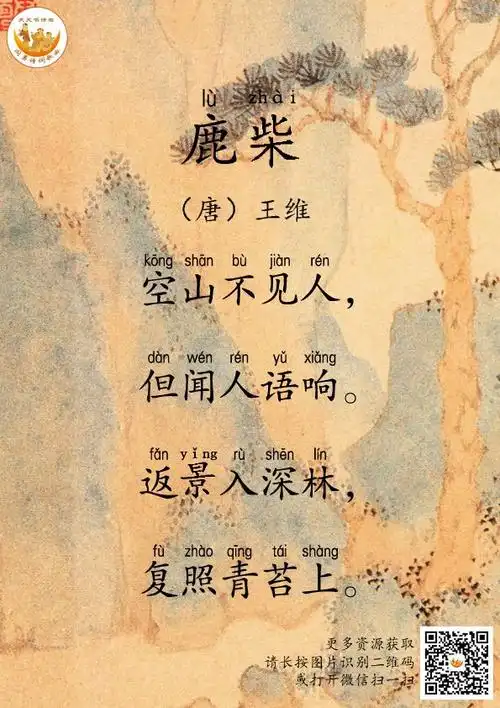 lù zhài
鹿柴
（唐）王维
kōng shān bù jiàn rén
空山不见人，
dàn wén rén yǔ xiǎng
但闻人语响。
fǎn yǐng rù shēn lín
返景入深林，
fù zhào qīng tái shàng
复照青苔上。
更多资源获取
请长按图片识别二维码
或打开微信扫一扫